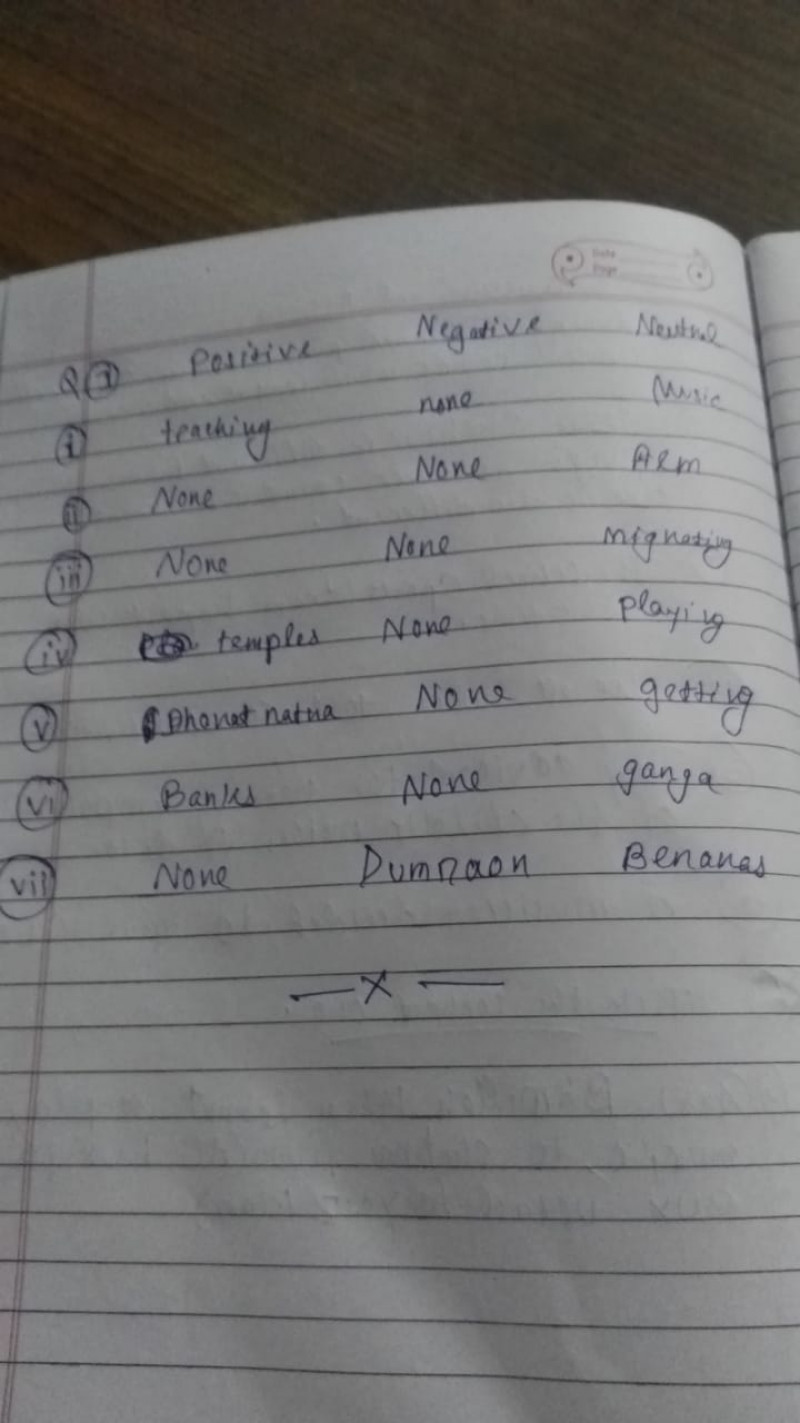 Date
Page
Q ① Positive Negative Neutral
i teaching none Music
ii None None Film
iii None None mignating
iv temples None playing
v Bharat natna None getting
vi Banks None ganga
vii None Dumnaon Benanas
— X —